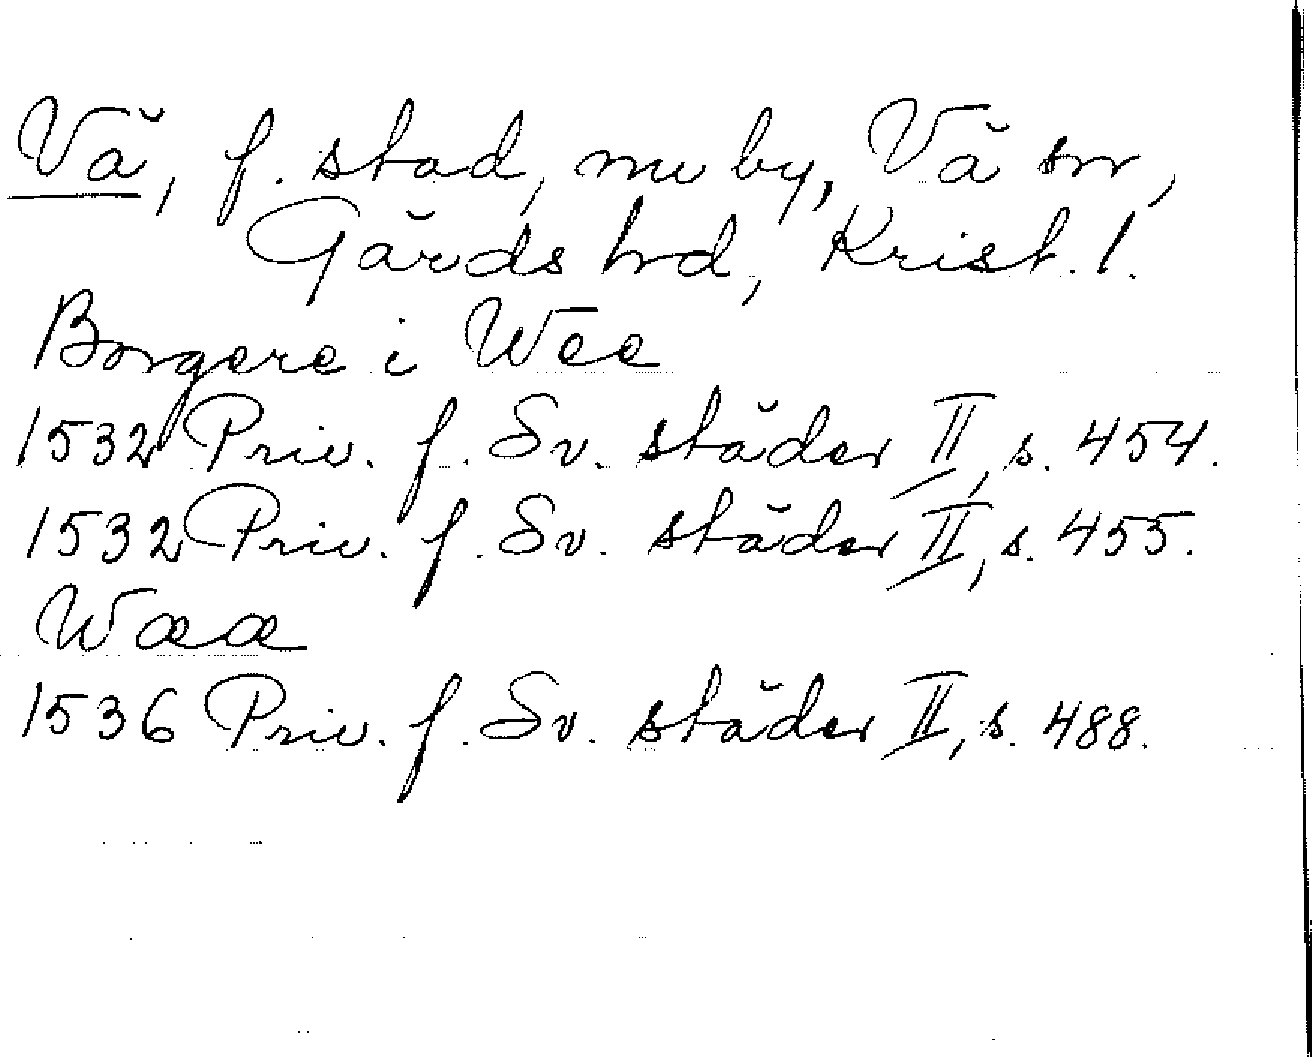 Vä, f. stad, nu by, Vä sn,
Gärds hd, Krist. l.
Borgere i Wee
1532 Priv. f. Sv. städer II, s. 454.
1532 Priv. f. Sv. städer II, s. 455.
Waa
1536 Priv. f. Sv. städer II, s. 488.